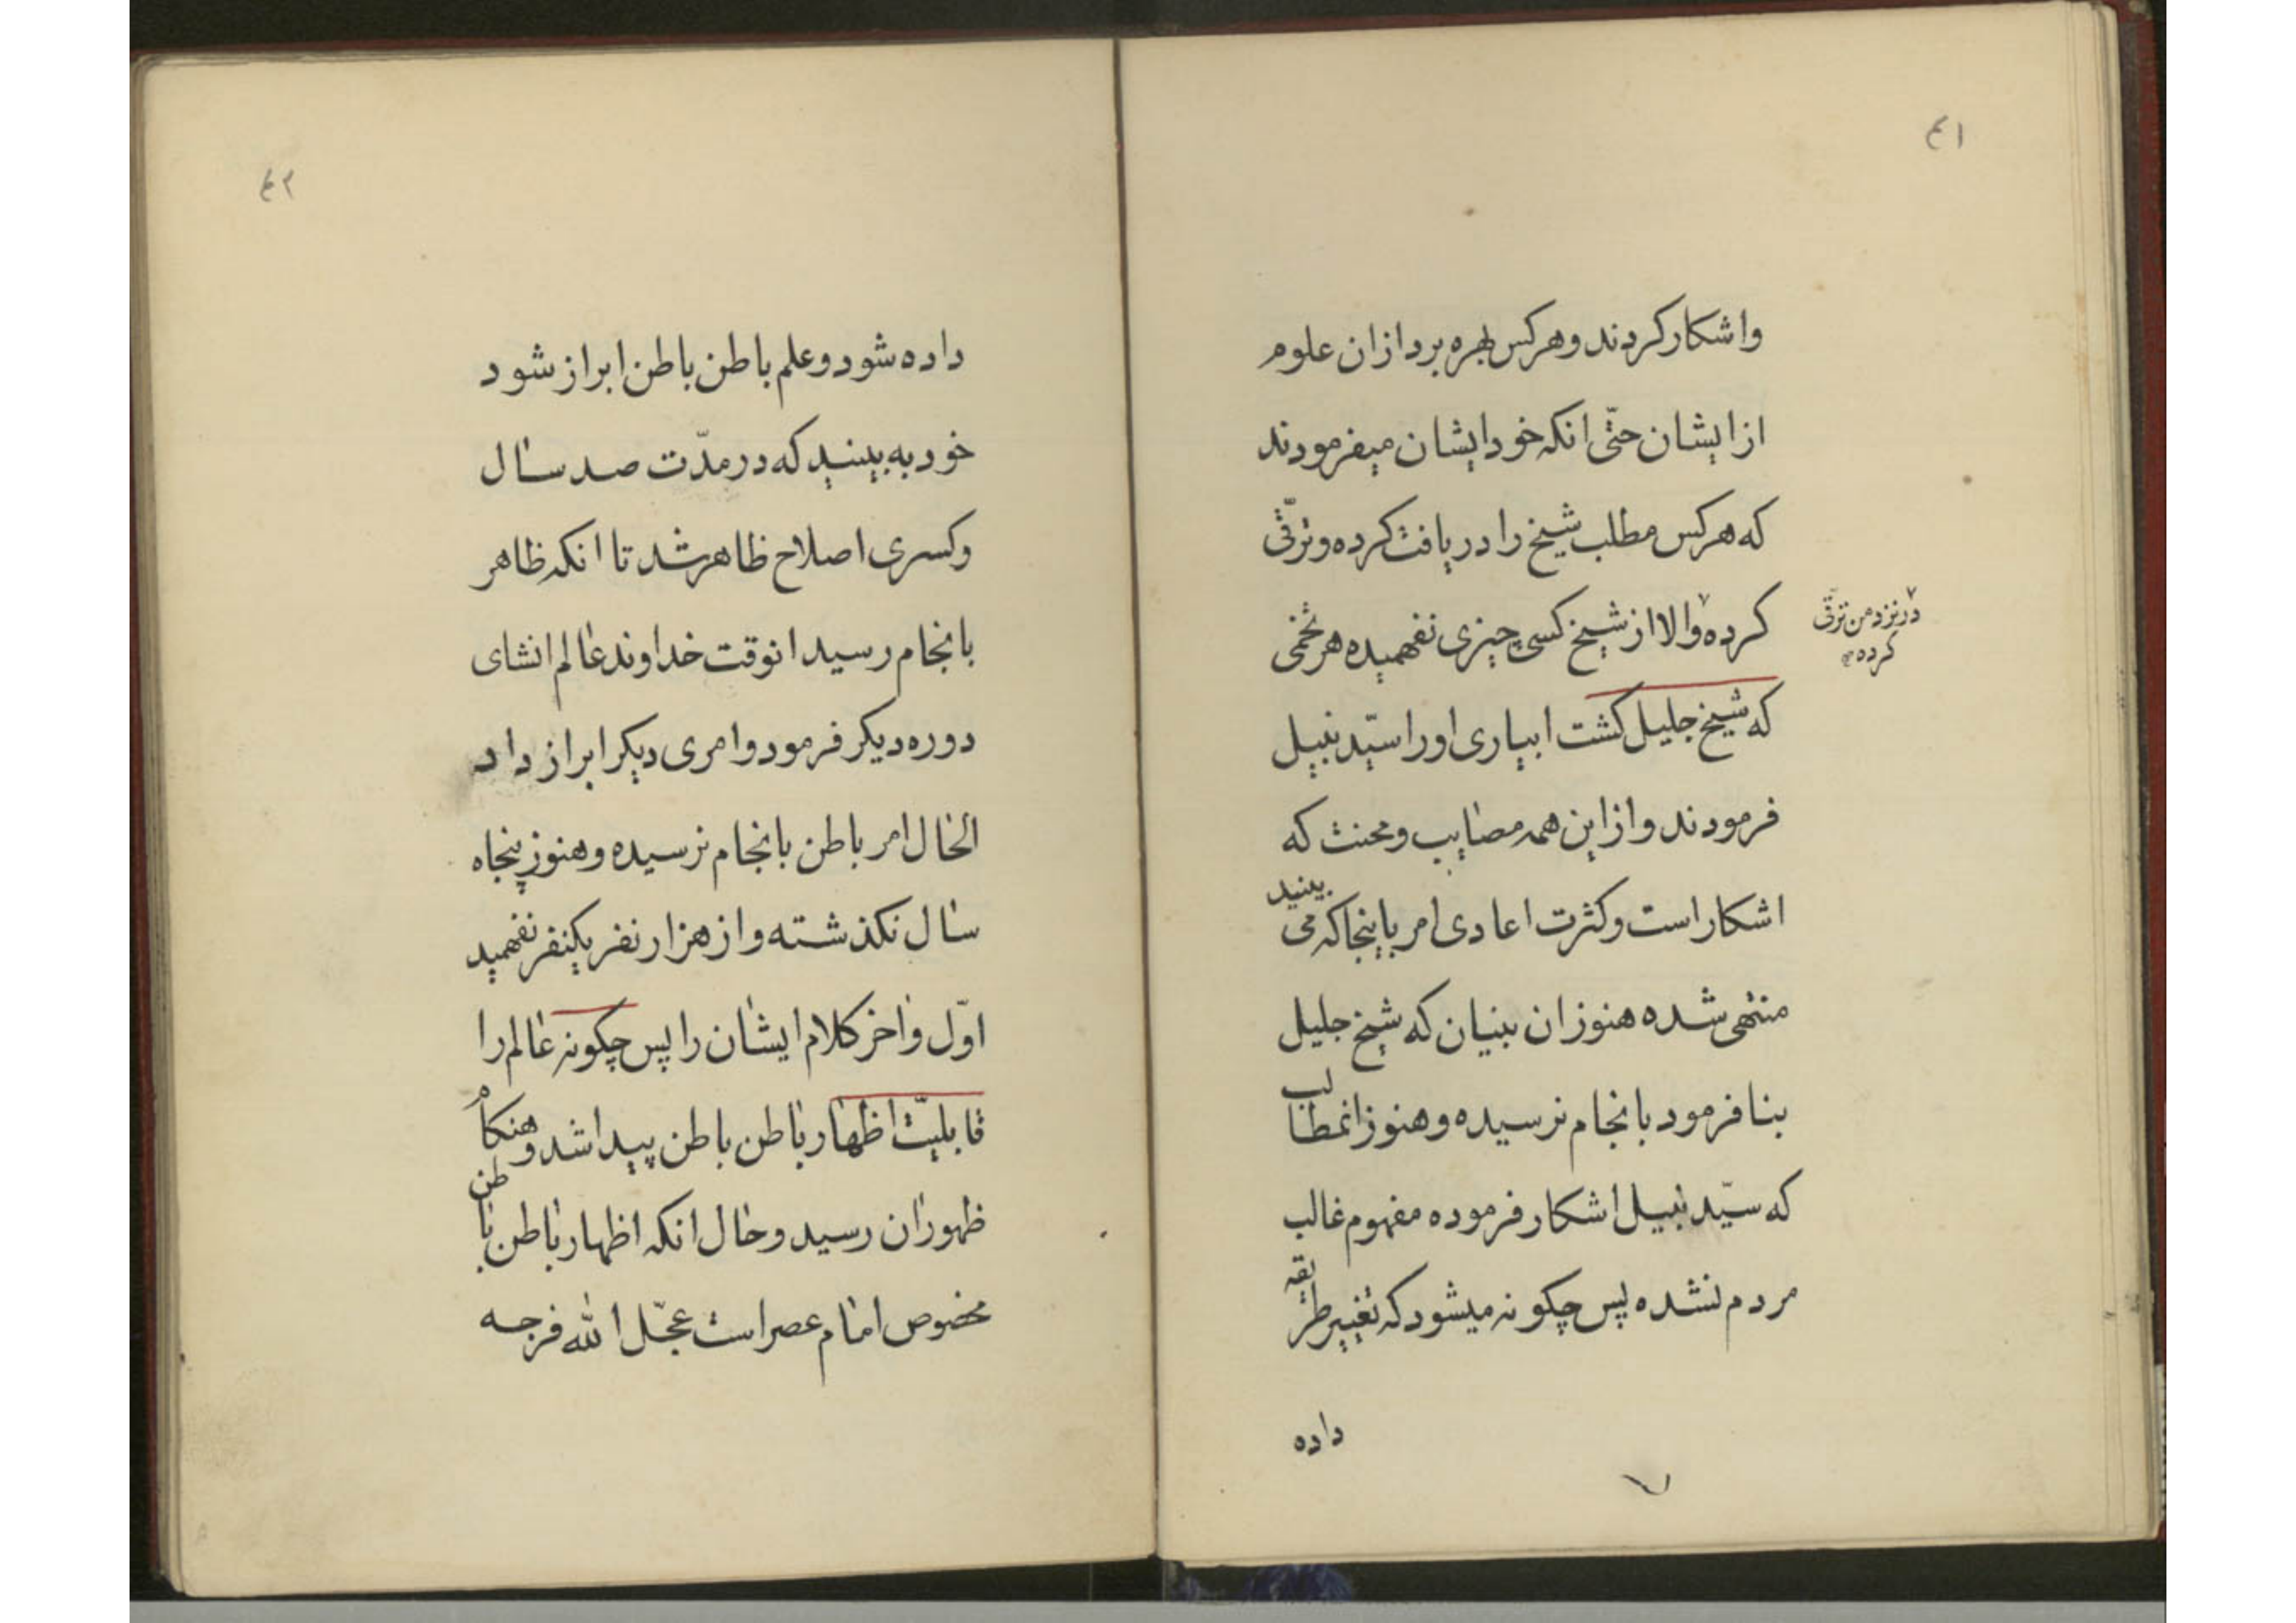 ٤١
واشکار کردند و هر کس بهره برد ازان علوم
از ایشان حتّی انکه خود ایشان میفرمودند
که هر کس مطلب شیخ را دریافت کرده و ترقّی
کرده والا از شیخ کسی چیزی نفهمیده هر تخمی
در نزد من ترقّی
کرده
که شیخ جلیل کشت ابیاری او را سیّد نبیل
فرمودند و از این همه مصایب و محنت که
اشکار است و کثرت اعادی امر باینجا که می بینید
منتهی شده هنوز ان بنیان که شیخ جلیل
بنا فرمود بانجام نرسیده و هنوز انمطالب
که سیّد نبیل اشکار فرموده مفهوم غالب
مردم نشده پس چکونه میشود که تغییر طریقه
داده
٧
٤٢
داده شود و علم باطن باطن ابراز شود
خود به بینید که در مدّت صد سال
و کسری اصلاح ظاهر شد تا انکه ظاهر
بانجام رسید انوقت خداوند عالم انشای
دوره دیکر فرمود و امری دیکر ابراز داد
الحال امر باطن بانجام نرسیده و هنوز پنجاه
سال نکذشته و از هزار نفر یکنفر نفهمید
اوّل و اخر کلام ایشان را پس چکونه عالم را
قابلیّت اظهار باطن باطن پیدا شد و هنکام
ظهور ان رسید و حال انکه اظهار باطن باطن
مخصوص امام عصر است عجّل الله فرجه